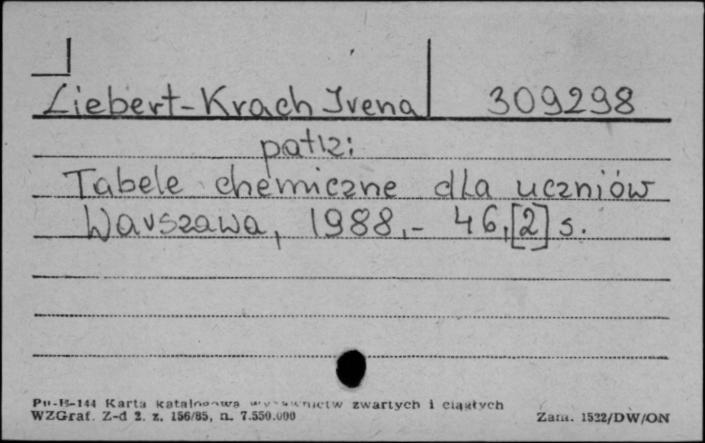 Liebert-Krach Irena 309298
patrz:
Tabele chemiczne dla uczniów
Warszawa, 1988.- 46,[2] s.
Pu-B-144 Karta katalogowa wydawnictw zwartych i ciągłych
WZGraf. Z-d 2. z. 156/85, n. 7.550.000
Zam. 1522/DW/ON